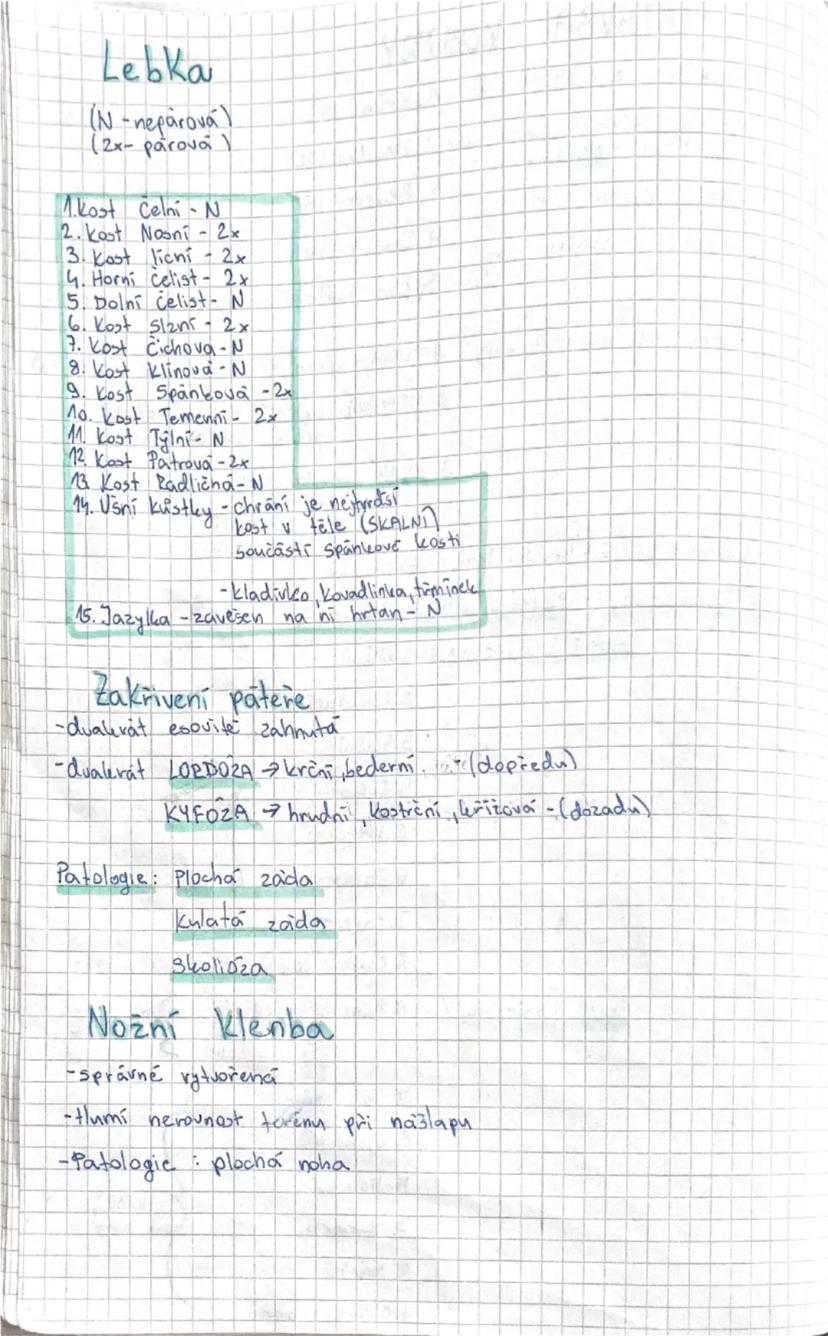 Lebka
(N - nepárová)
(2x - párová)
1. Kost Čelní - N
2. Kost Nosní - 2x
3. Kost lícní - 2x
4. Horní čelist - 2x
5. Dolní čelist - N
6. Kost slzní - 2x
7. Kost Čichova - N
8. Kost Klínová - N
9. Kost Spánková - 2x
10. Kost Temenní - 2x
11. Kost Týlní - N
12. Kost Patrová - 2x
13. Kost Radličná - N
14. Ušní kůstky - chrání je nejtvrdší
kost v těle (SKALNÍ)
součástí spánkové kosti
- kladívko, kovadlinka, třmínek
15. Jazylka - zavěšen na ní hrtan - N
Zakřivení páteře
- dvakrát esovitě zahnutá
- dvakrát LORDÓZA → krční, bederní - (dopředu)
KYFÓZA → hrudní, kostrční, křížová - (dozadu)
Patologie: Plochá záda
Kulatá záda
Skolióza
Nožní Klenba
- správně vytvořená
- tlumí nerovnost terénu při nášlapu
- Patologie : plochá noha